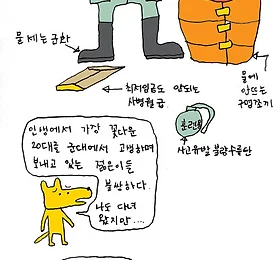 물 새는 군화
최저임금도 안되는
사병월급
물에
안뜨는
구명조끼
훈련용
사고유발 불량수류탄
인생에서 가장 꽃다운
20대를 군대에서 고생하며
보내고 있는 젊은이들
불쌍하다.
나도 다녀
왔지만....